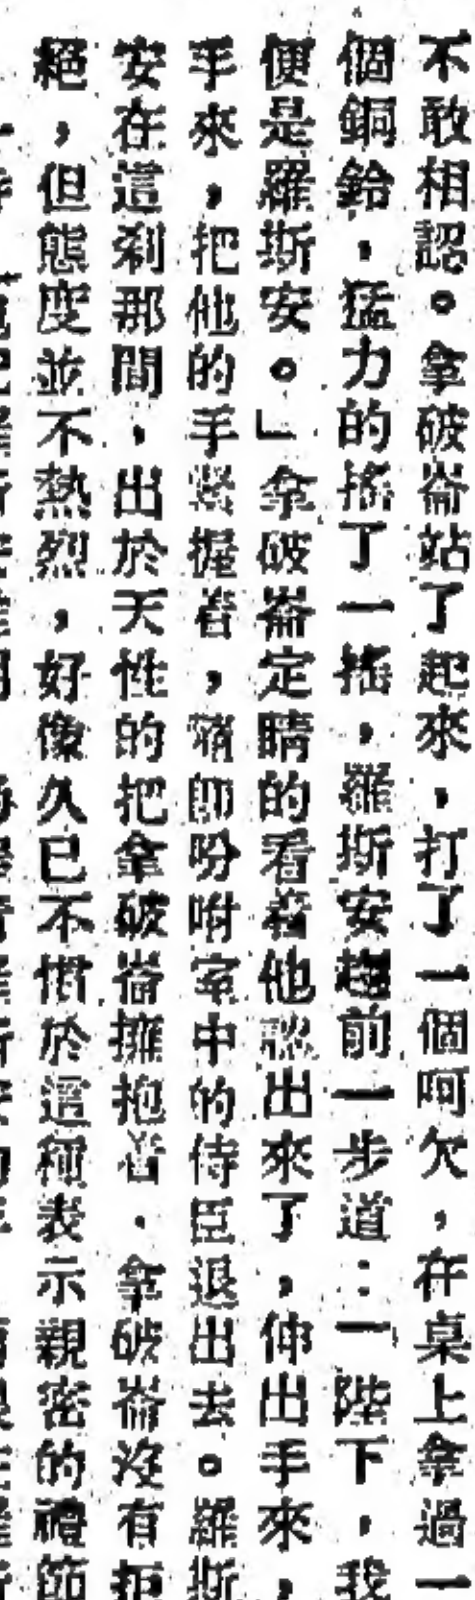 不敢相認。拿破崙站了起來，打了一個呵欠，在桌上拿過一
個銅鈴，猛力的搖了一搖，羅斯安趨前一步道：「陛下，我
便是羅斯安。」拿破崙定睛的看着他認出來了，伸出手來，
手來，把他的手緊握着，隨即吩咐室中的侍臣退出去。羅斯
安在這刹那間，出於天性的把拿破崙擁抱着．拿破崙沒有拒
絕，但態度並不熱烈，好像久已不慣於這種表示親密的禮節